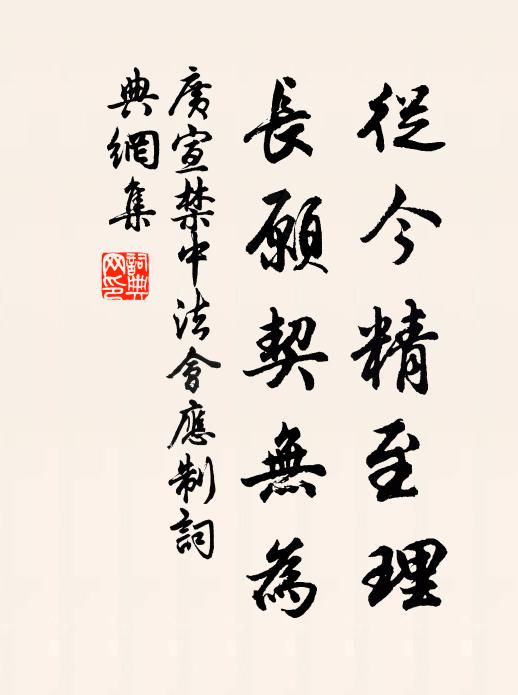 從今精至理
長願契無為
廣宣禁中法會應制詞
典網集
詞典網印